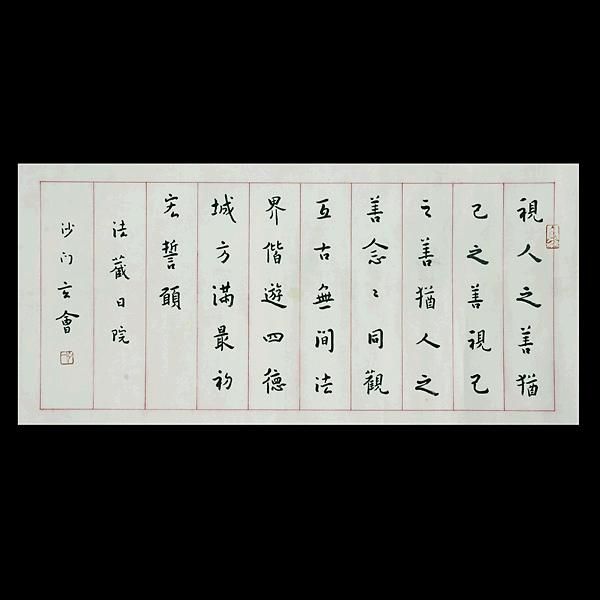 視人之善猶
己之善視己
之善猶人之
善念〻同觀
亙古無間法
界偕遊四德
城方滿最初
宏誓願
法藏日院
沙門玄會